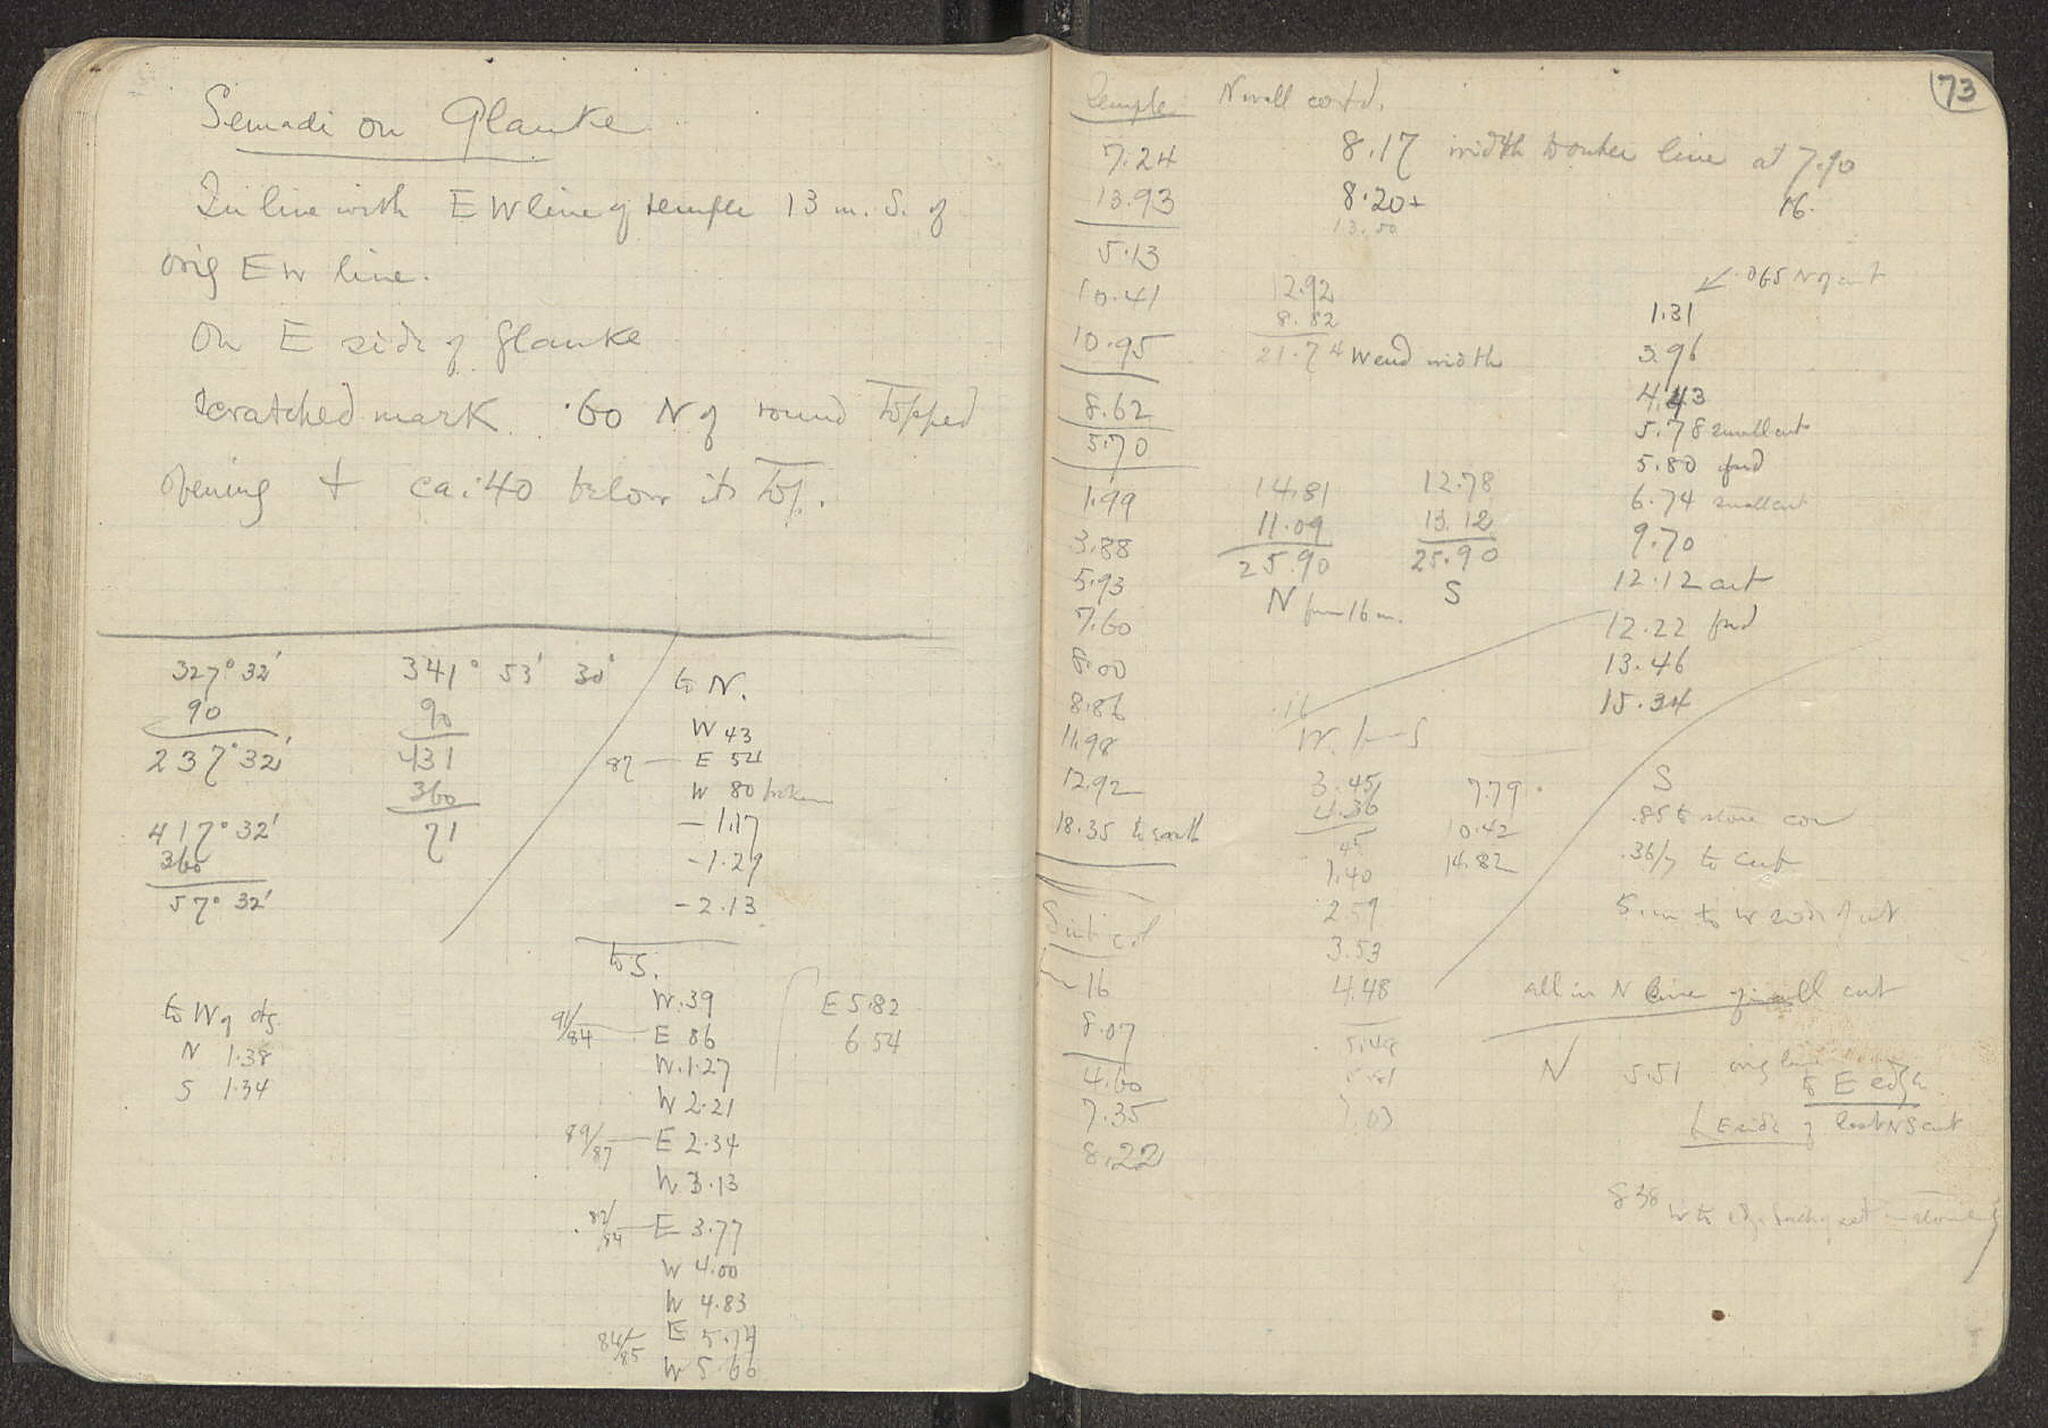 Semadi on Glauke
In line with E W line of temple 13 m. S. of
orig E W line.
On E side of Glauke
scratched mark .60 N of round topped
opening + ca .40 below its top.
327° 32'
90
237° 32'
417° 32'
360
57° 32'
341° 53' 30"
90
431
360
71
to N.
W 43
87 — E 54
W 80 broken
- 1.17
- 1.29
- 2.13
to S.
W .39
91/84 — E 86
W. 1.27
W 2.21
89/87 — E 2.34
W 3.13
82/84 — E 3.77
W 4.00
W 4.83
84/85 E 5.74
W 5.60
E 5.82
6 54
to W of
N 1.38
S 1.34
73
Temple N wall contd.
7.24
13.93
5.13
10.41
10.95
8.62
5.70
1.99
3.88
5.93
7.60
8.00
8.86
11.98
12.92
18.35 to earth
16
8.07
4.60
7.35
8.22
8.17 width to outer line at 7.90
8.20+ 16.
13.50
12.92
8.82
21.74 W end width
14.81
11.09
25.90
N from 16 m.
12.78
13.12
25.90
S
.065 N of cut
1.31
3.96
4.43
5.78 small cut
5.80 fnd
6.74 small cut
9.70
12.12 cut
12.22 fnd
13.46
15.34
.16
3.45
4.36
45
1.40
2.59
3.53
4.48
5.49
7.79
10.42
14.82
S
.85 to stone cor
.36/7 to cut
5. m to W side of cut
all in N line of wall cut
N 5.51 orig line
to E edge
E side of last NS cut
8 38